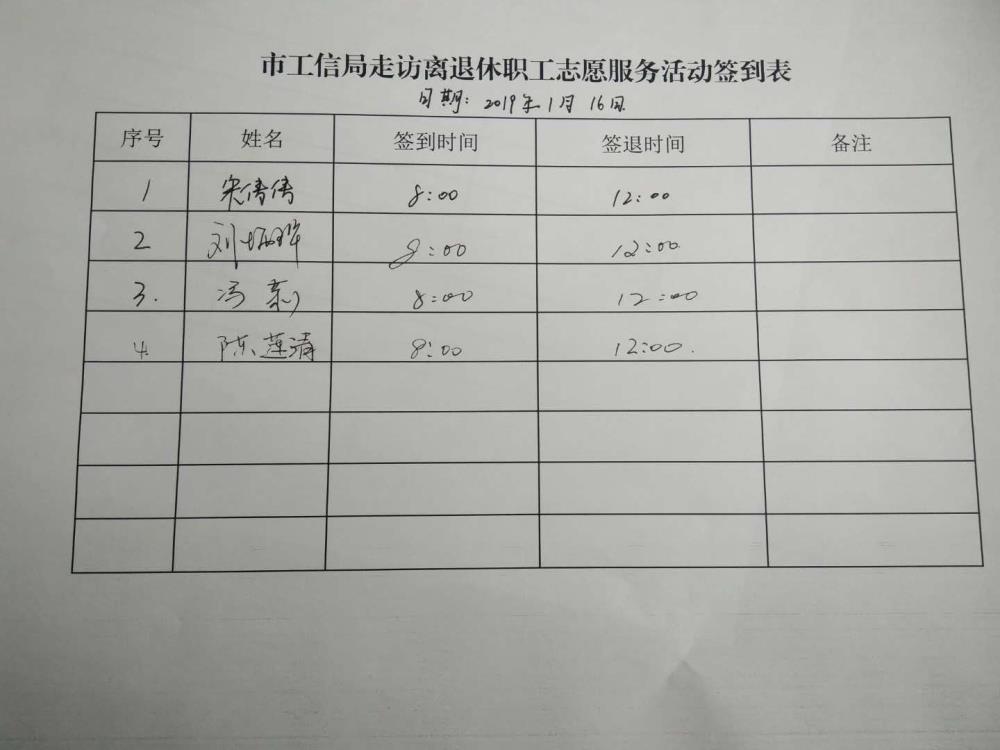 市工信局走访离退休职工志愿服务活动签到表
日期：2019年1月16日
序号 姓名 签到时间 签退时间 备注
1 宋倩倩 8:00 12:00
2 刘 8:00 12:00
3. 冯莉 8:00 12:00
4. 陈莲清 8:00 12:00.